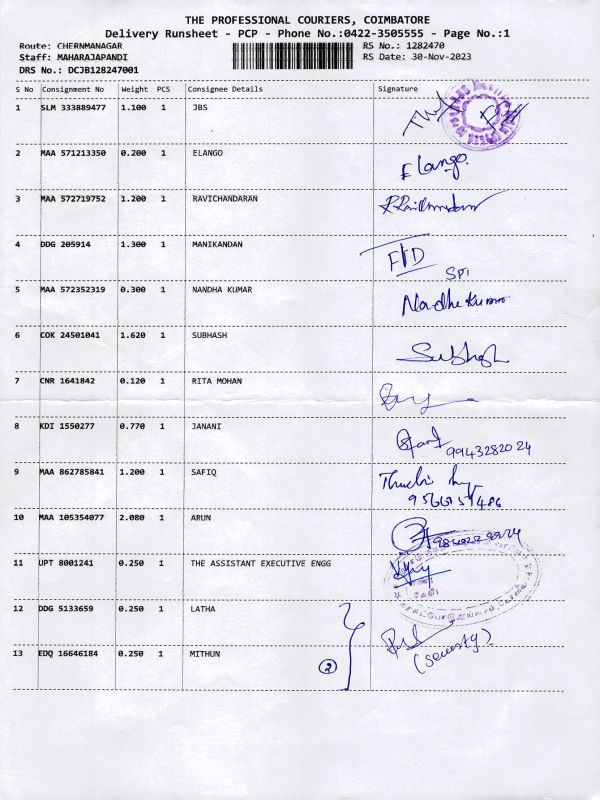 THE PROFESSIONAL COURIERS, COIMBATORE
Delivery Runsheet - PCP - Phone No.:0422-3505555 - Page No.:1
Route: CHERNMANAGAR
RS No.: 1282470
Staff: MAHARAJAPANDI
RS Date: 30-Nov-2023
DRS No.: DCJB128247001
S No Consignment No Weight PCS Consignee Details Signature
1 SLM 333889477 1.100 1 JBS
2 MAA 571213350 0.200 1 ELANGO Elango.
3 MAA 572719752 1.200 1 RAVICHANDARAN
4 DDG 205914 1.300 1 MANIKANDAN
5 MAA 572352319 0.300 1 NANDHA KUMAR Nandha Kumar
6 COK 24501041 1.620 1 SUBHASH Subhash
7 CNR 1641842 0.120 1 RITA MOHAN
8 KDI 1550277 0.770 1 JANANI 9943282024
9 MAA 862785841 1.200 1 SAFIQ
10 MAA 105354077 2.080 1 ARUN
11 UPT 8001241 0.250 1 THE ASSISTANT EXECUTIVE ENGG
12 DDG 5133659 0.250 1 LATHA
13 EDQ 16646184 0.250 1 MITHUN 2 (security)